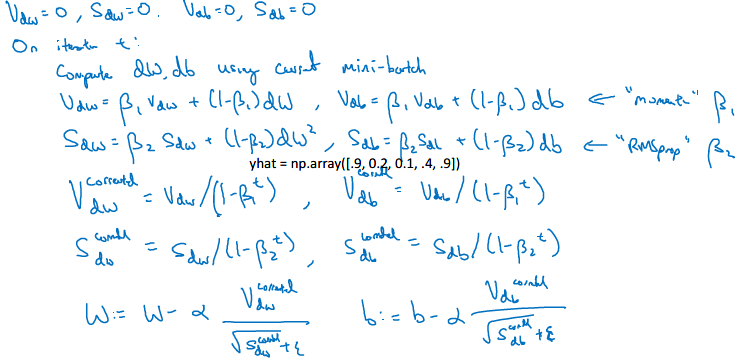 V_dw = 0 , S_dw = 0. V_db = 0, S_db = 0
On iteratn t:
Compute dw, db using current mini-batch
V_dw = β₁ V_dw + (1-β₁) dW , V_db = β₁ V_db + (1-β₁) db ← "moment" β₁
S_dw = β₂ S_dw + (1-β₂) dW² , S_db = β₂ S_db + (1-β₂) db ← "RMSprop" β₂
yhat = np.array([.9, 0.2, 0.1, .4, .9])
V_dw^corrected = V_dw/(1-β₁^t) , V_db^corrected = V_db/(1-β₁^t)
S_dw^corrected = S_dw/(1-β₂^t) , S_db^corrected = S_db/(1-β₂^t)
W := W - α V_dw^corrected / √S_dw^corrected + ε b := b - α V_db^corrected / √S_db^corrected + ε